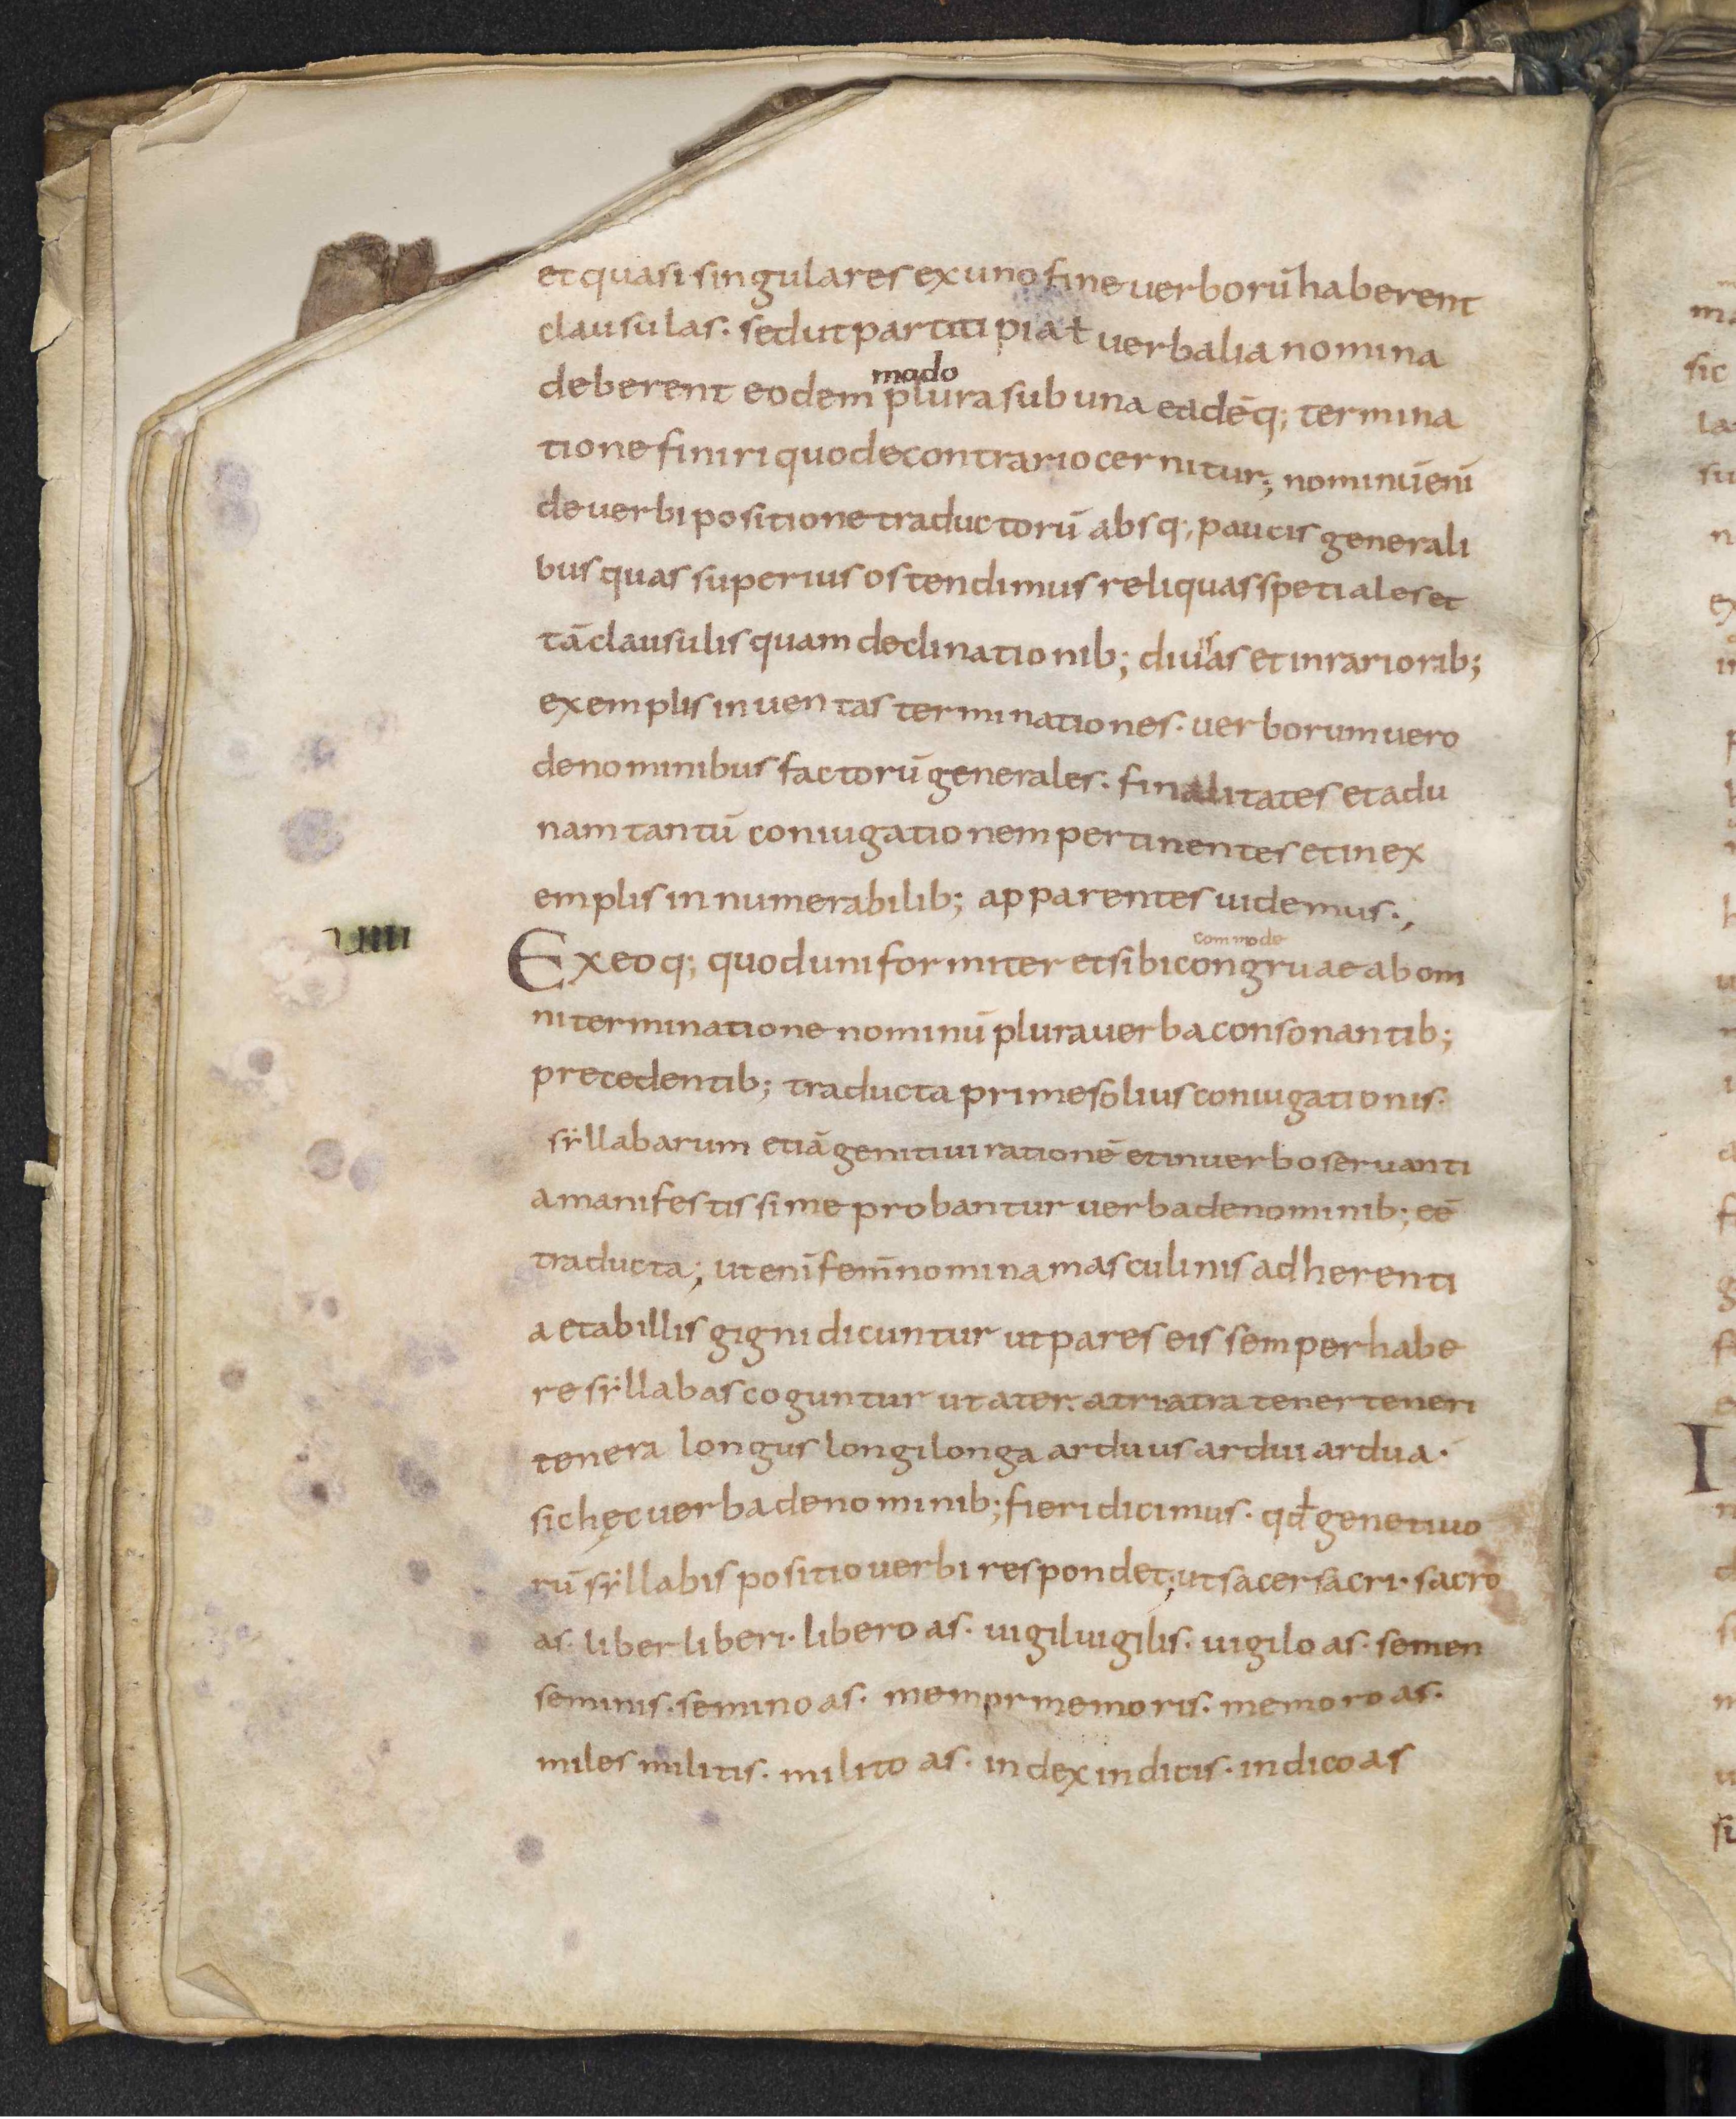 et quasi singulares ex uno fine uerborū haberent
clausulas. sed ut partitipia ł uerbalia nomina
modo
deberent eodem plura sub una eadēq; termina
tione finiri quod e contrario cernitur; nominū enī
de uerbi positione traductorū absq; paucis generali
bus quas superius ostendimus reliquas spetiales et
tā clausulis quam declinationib; diu͛as et in rariorib;
exemplis inuentas terminationes. uerborum uero
de nominibus factorū generales. finalitates et ad u
nam tantū coniugationem pertinentes et in ex
emplis innumerabilib; apparentes uidemus.,
commode
uiiii
Ex eoq; quod uniformiter et sibi congruae ab om
ni terminatione nominū plura uerba consonantib;
precedentib; traducta prime solius coniugationis.
sẏllabarum etiā genitiui rationē et in uerbo seruanti
a manifestissime probantur uerba de nominib; eē
traducta; ut enī femī nomina masculinis adherenti
a et ab illis gigni dicuntur ut pares eis semper habe
re sẏllabas coguntur ut ater. atri atra tener teneri
tenera longus longi longa arduus ardui ardua.
sic hęc uerba de nominib; fieri dicimus. qđ genetiuo
rū sẏllabis positio uerbi respondet; ut sacer sacri. sacro
as. liber liberi. libero as. uigil uigilis. uigilo as. semen
seminis. semino as. memor memoris. memoro as.
miles militis. milito as. index indicis. indico as